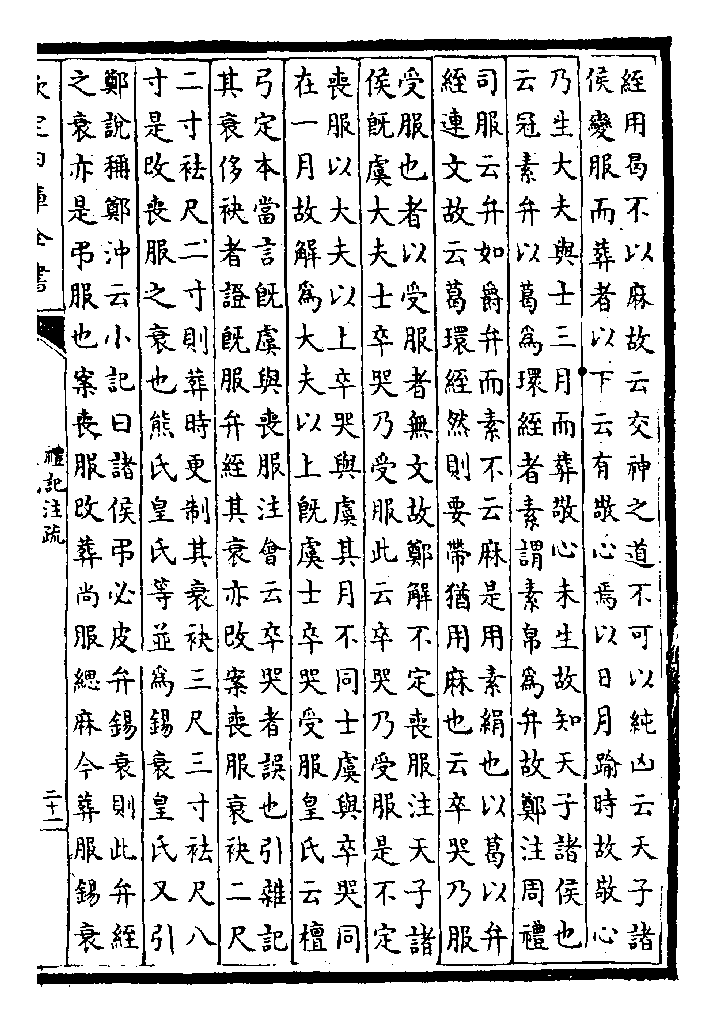 絰用曷不以麻故云交神之道不可以純凶云天子諸
侯變服而葬者以下云有敬心焉以日月踰時故敬心
乃生大夫與士三月而葬敬心未生故知天子諸侯也
云冠素弁以葛為環絰者素謂素帛為弁故鄭注周禮
司服云弁如爵弁而素不云麻是用素絹也以葛以弁
絰連文故云葛環絰然則要帶猶用麻也云卒哭乃服
受服也者以受服者無文故鄭解不定喪服注天子諸
侯旣虞大夫士卒哭乃受服此云卒哭乃受服是不定
喪服以大夫以上卒哭與虞其月不同士虞與卒哭同
在一月故解為大夫以上旣虞士卒哭受服皇氏云檀
弓定本當言旣虞與喪服注會云卒哭者誤也引雜記
其衰侈袂者證旣服弁絰其衰亦改案喪服衰袂二尺
二寸袪尺二寸則葬時更制其衰袂三尺三寸袪尺八
寸是改喪服之衰也熊氏皇氏等並為錫衰皇氏又引
鄭說稱鄭沖云小記曰諸侯弔必皮弁錫衰則此弁絰
之衰亦是弔服也案喪服改葬尚服緦麻今葬服錫衰
欽定四庫全書
禮記注疏
二十二